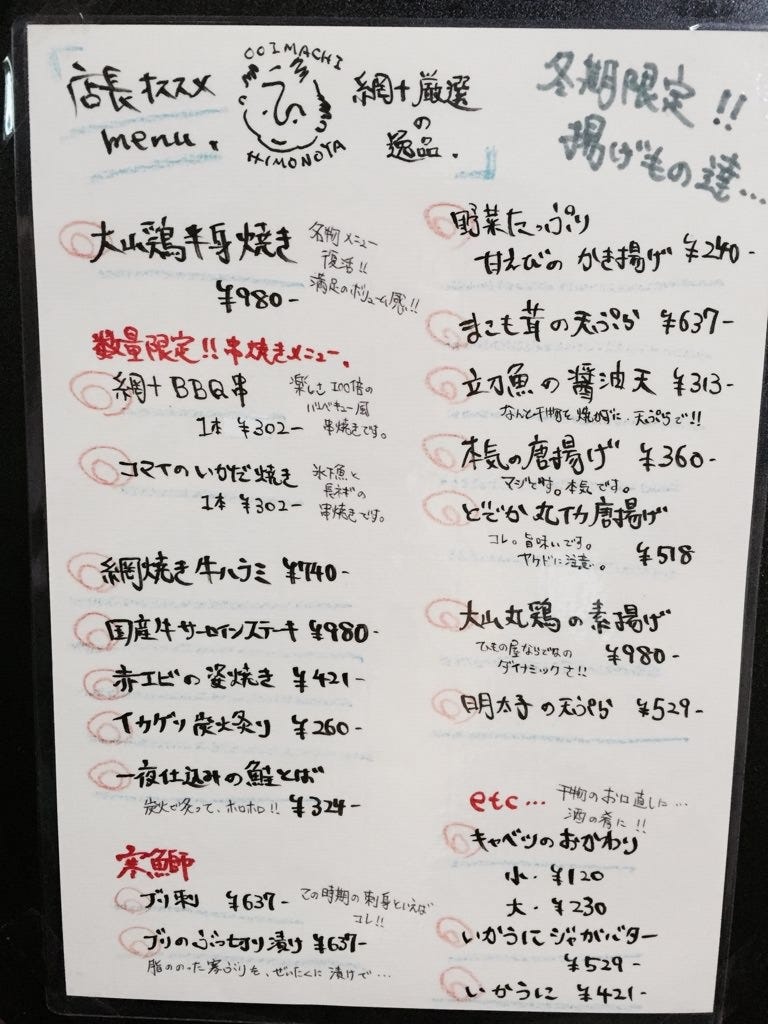 店長オススメ
menu.
OOIMACHI
HIMONOYA
網十厳選
の
逸品.
大山鶏半身焼き
¥980-
名物メニュー
復活!!
満足のボリューム感!!
数量限定!!串焼きメニュー.
網十BBQ串
1本 ¥302-
楽しさ100倍の
バーベキュー風
串焼きです。
コマイのいかだ焼き
1本 ¥302-
氷下魚と
長ネギの
串焼きです。
網焼き牛ハラミ ¥740-
国産牛サーロインステーキ ¥980-
赤エビの姿焼き ¥421-
イカゲソ炭火炙り ¥260-
一夜仕込みの鮭とば
炭火で炙って、ホロホロ!! ¥324-
寒鰤
ブリ刺 ¥637-
この時期の刺身といえば
コレ!!
ブリのぶつ切り漬け ¥637-
脂ののった寒ぶりを、ぜいたくに漬けで…
冬期限定!!
揚げもの達…
野菜たっぷり
甘えびのかき揚げ ¥240-
まこも茸の天ぷら ¥637-
立刀魚の醤油天 ¥313-
なんと干物を焼かずに、天ぷらで!!
本気の唐揚げ ¥360-
マジです。本気です。
どでか丸イカ唐揚げ
コレ。旨味いです。
ヤケドに注意。
¥518
大山丸鶏の素揚げ
ひもの屋ならでわの
ダイナミックさ!!
¥980-
明太子の天ぷら ¥529-
etc…
干物のお口直しに…
酒の肴に!!
キャベツのおかわり
小・¥120
大・¥230
いかうにジャがバター
¥529-
いかうに ¥421-